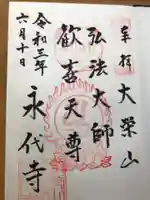 奉拝 大榮山
弘法大師
歓喜天尊
永代寺
令和三年
六月十日